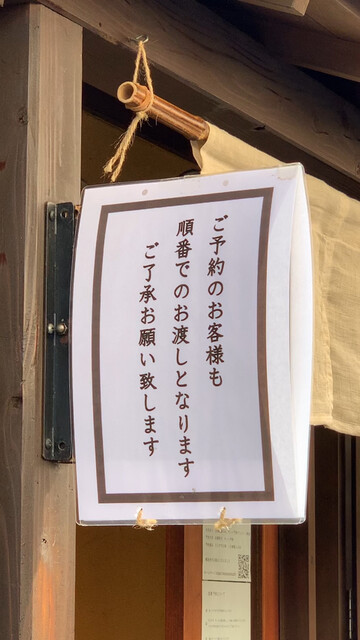 ご予約のお客様も
順番でのお渡しとなります
ご了承お願い致します